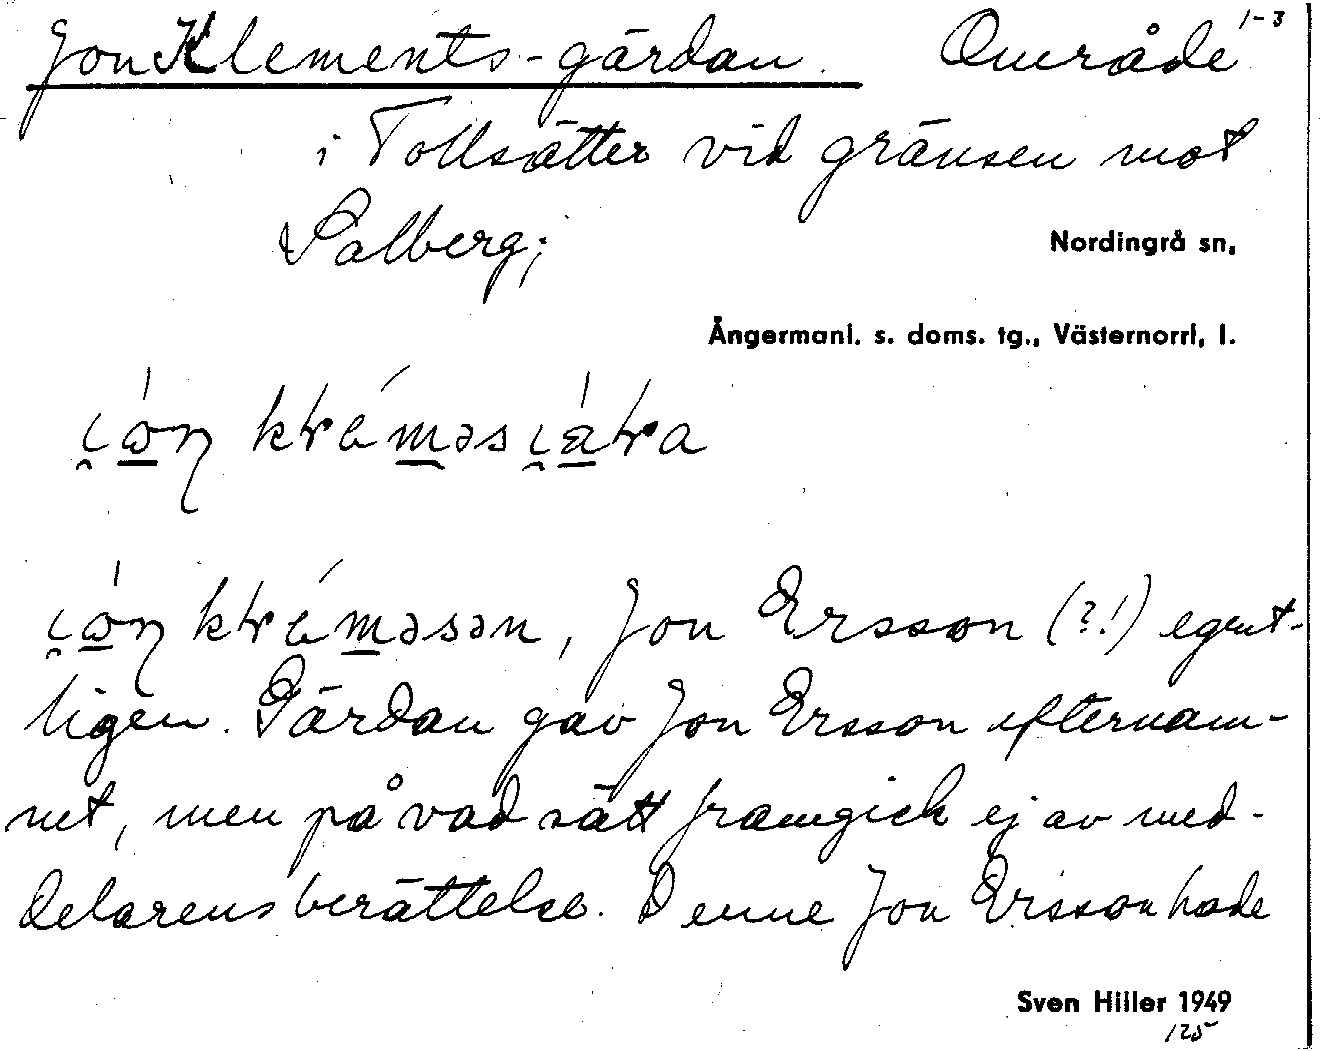 Jon Klements-gärdan. Område 1-3
i Tollsätter vid gränsen mot
Salberg;
Nordingrå sn,
Ångermanl. s. doms. tg., Västernorrl. l.
Jon Ersson (?!) egent-
ligen. Gärdan gav Jon Ersson efternam-
net, men på vad sätt framgick ej av med-
delarens berättelse. Denne Jon Ersson hade
Sven Hiller 1949
125